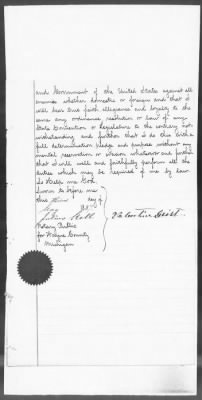 and Government of the United States against all
enemies whether domestic or foreign and that I
will bear true faith allegiance and loyalty to the
same any ordinance resolution or law of any
State Convention or Legislature to the contrary not
withstanding and further that I do this with a
full determination pledge and purpose without any
mental reservation or evasion whatsoever and further
that I will well and faithfully perform all the
duties which may be required of me by law
So Help me God.
Sworn to before me
this day of
Valentin Geist.
Notary Public
for Wayne County
Michigan